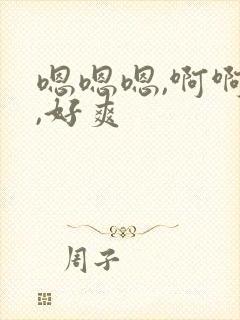 嗯嗯嗯,啊啊
,好爽
周子